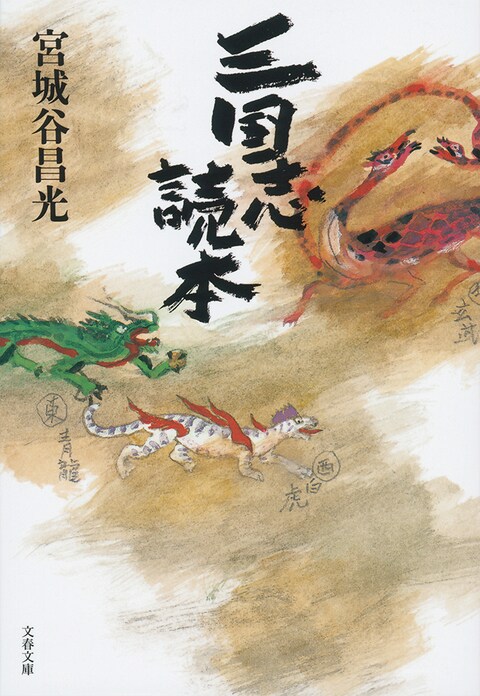 三国志
読本
宮城谷昌光
玄武
東
青龍
西
白
虎
文春文庫